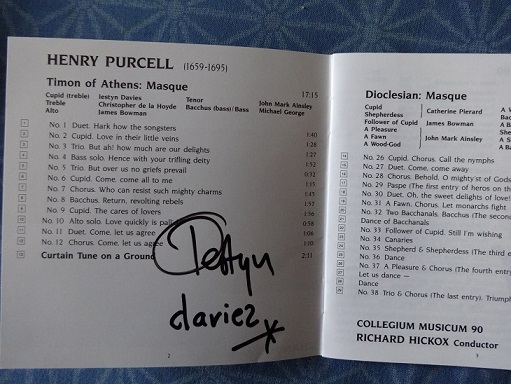 HENRY PURCELL (1659-1695)
Timon of Athens: Masque 17:15
Cupid (treble) Iestyn Davies Tenor John Mark Ainsley
Treble Christopher de la Hoyde Bacchus (bass)/Bass Michael George
Alto James Bowman
1 No. 1 Duet. Hark how the songsters 1:40
2 No. 2 Cupid. Love in their little veins 1:28
3 No. 3 Trio. But ah! how much are our delights 1:27
4 No. 4 Bass solo. Hence with your trifling deity 1:52
5 No. 5 Trio. But over us no griefs prevail 0:32
6 No. 6 Cupid. Come all to me 1:15
7 No. 7 Chorus. Who can resist such mighty charms 1:45
8 No. 8 Bacchus. Return. revolting rebels 1:52
9 No. 9 Cupid. The cares of lovers 1:56
10 No. 10 Alto solo. Love quickly is 0:58
11 No. 11 Duet. Come, let us agree 1:06
12 No. 12 Chorus. Come let us agree 1:10
13 Curtain Tune on a Ground 2:11
Iestyn
davies
2
Dioclesian: Masque
Cupid Catherine Pierard
Shepherdess
Follower of Cupid James Bowman
A Pleasure
A Faun John Mark Ainsley
A Wood-God
14 No. 26 Cupid. Chorus. Call the nymphs
15 No. 27 Duet. Come, come away
No. 28 Chorus. Behold, O mighty'st of Gods
No. 29 Paspe (The first entry of heros on th
No. 30 Duet. Oh, the sweet delights of love!
No. 31 A Faun. Chorus. Let monarchs fight
No. 32 Two Bacchanals. Bacchus (The second
Dance of Bacchanals
No. 33 Follower of Cupid. Still I'm wishing
No. 34 Canaries
No. 35 Shepherd & Shepherdess (The third e
No. 36 Dance
No. 37 A Pleasure & Chorus (The fourth entry
Let us dance —
Dance
No. 38 Trio & Chorus (The last entry). Triump
COLLEGIUM MUSICUM 90
RICHARD HICKOX Conductor
3